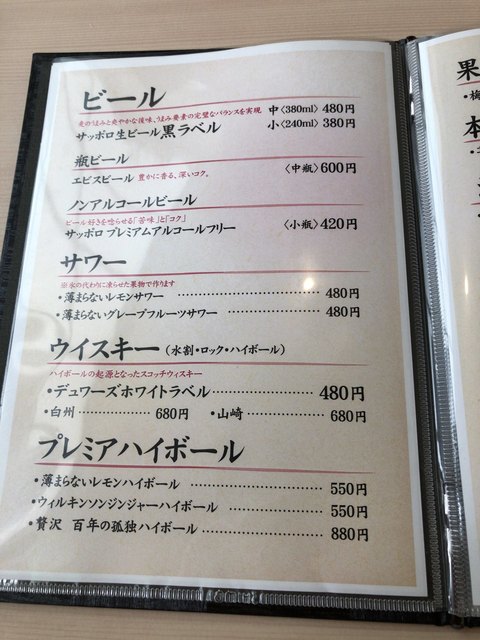 ビール
麦のうまみと爽やかな後味、うまみ要素の完璧なバランスを実現 中〈380ml〉480円
サッポロ生ビール黒ラベル 小〈240ml〉380円
瓶ビール
ヱビスビール 豊かに香る、深いコク。 〈中瓶〉600円
ノンアルコールビール
ビール好きを唸らせる「苦味」と「コク」
サッポロ プレミアムアルコールフリー 〈小瓶〉420円
サワー
※氷の代わりに凍らせた果物で作ります
・薄まらないレモンサワー ……………………… 480円
・薄まらないグレープフルーツサワー …………… 480円
ウイスキー(水割・ロック・ハイボール)
ハイボールの起源となったスコッチウィスキー
・デュワーズホワイトラベル ……………… 480円
・白州 …………… 680円 ・山崎 …………… 680円
プレミアハイボール
・薄まらないレモンハイボール …………………… 550円
・ウィルキンソンジンジャーハイボール …………… 550円
・贅沢 百年の孤独ハイボール ………………… 880円
果
・梅
本